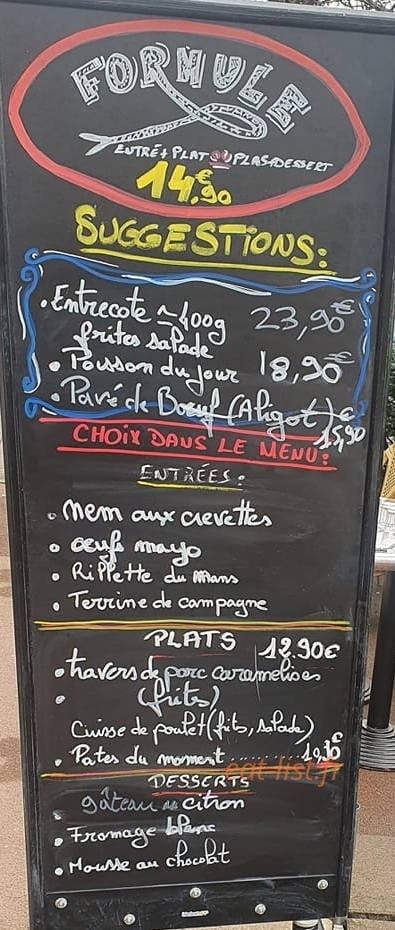 FORMULE
ENTRÉ + PLAT OU PLAS+DESSERT
14.€90
SUGGESTIONS:
• Entrecote ~400g 23,90€
frites salade
• Poisson du jour 18,90€
• Pavé de Boeuf (Aligot) 15,90€
CHOIX DANS LE MENU:
ENTRÉES:
• nem aux crevettes
• oeufs mayo
• Rillette du mans
• Terrine de campagne
PLATS 12.90€
• travers de porc caramelises
• (frits)
Cuisse de poulet (frits, salade)
• Pates du moment ...... 10,10€
eat-list.fr
DESSERTS
gâteau au citron
• Fromage blanc
• Mousse au chocolat